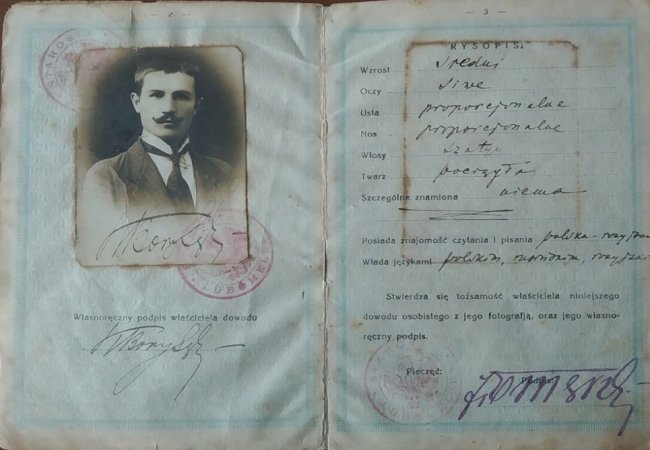 — 2 —
STAROS
LUBOMELSK
Własnoręczny podpis właściciela dowodu
— 3 —
RYSOPIS:
Wzrost średni
Oczy siwe
Usta proporcjonalne
Nos proporcjonalne
Włosy szatyn
Twarz pociągła
Szczególne znamiona niema
Posiada znajomość czytania i pisania polska-
Włada językami polskim,
Stwierdza się tożsamość właściciela niniejszego
dowodu osobistego z jego fotografją, oraz jego własno-
ręczny podpis.
Pieczęć: